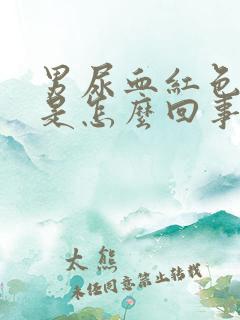 男尿血紅色
是怎麼回事
太熊
未经同意禁止转载